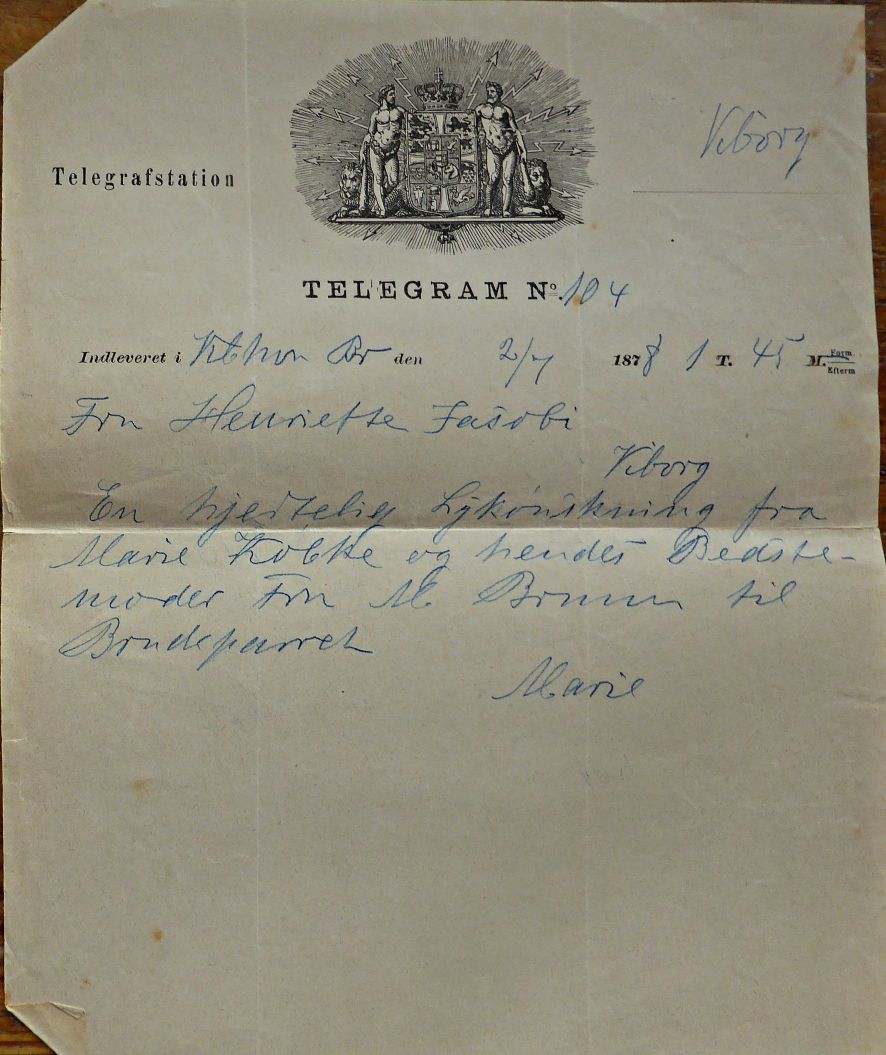 Viborg
Telegrafstation
TELEGRAM No. 104
Indleveret i Kbhvn Br den 2/7 1878 1 T. 45 M. Form. Efterm
Fru Henriette Jacobi
Viborg
En hjertelig Lykønskning fra
Marie Købke og hendes Bedste-
moder Fru M Bruun til
Brudeparret
Marie